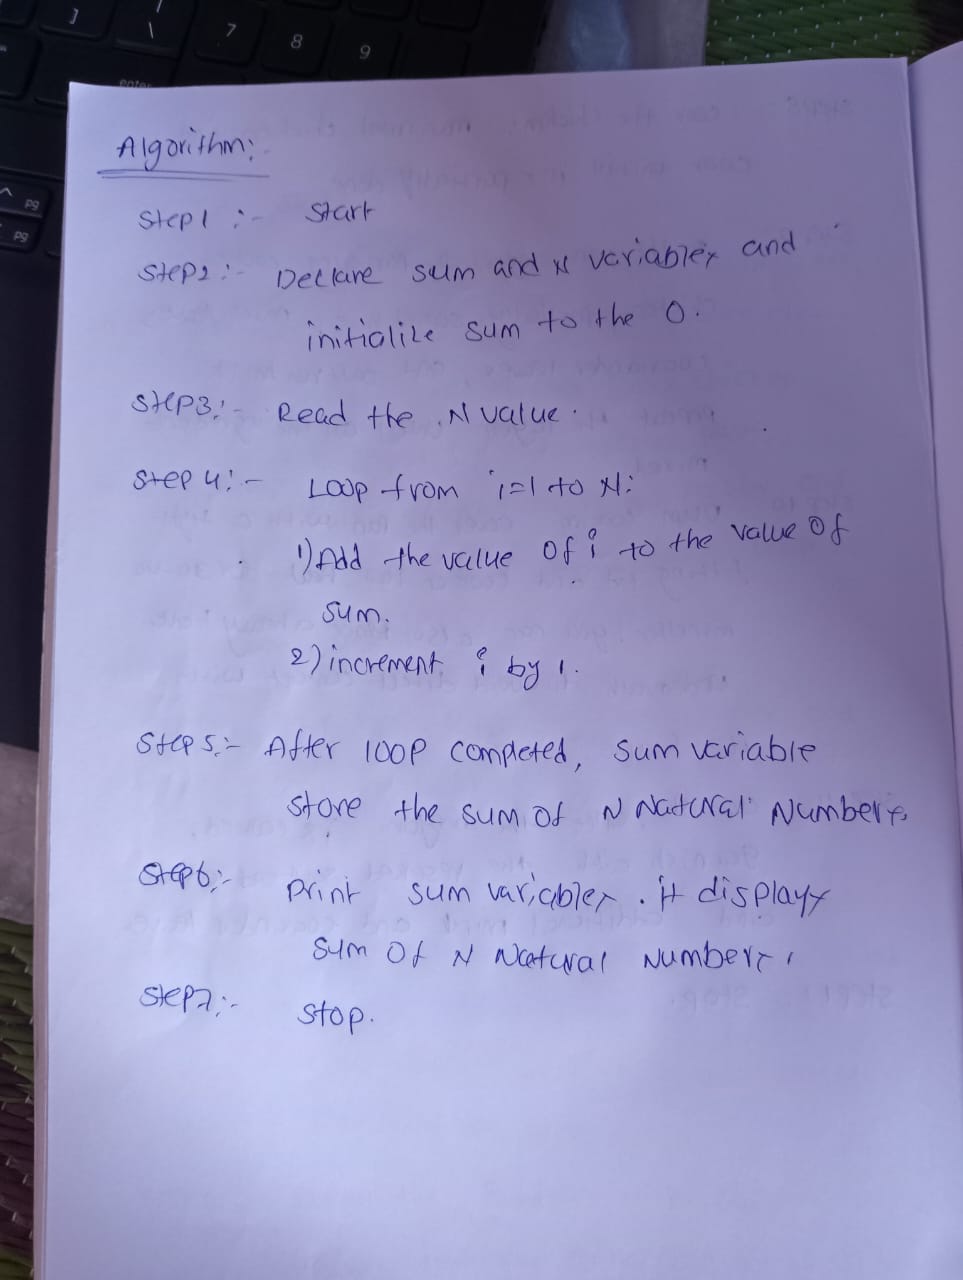 ] \ 7 8 9
enter
^ pg
pg
Algorithm:-
Step1 :- Start
Step2:- Declare sum and N variables and
initialize sum to the 0.
Step3:- Read the N value.
Step 4:- Loop from i=1 to N:
1) Add the value of i to the value of
sum.
2) increment i by 1.
Step 5:- After loop completed, sum variable
store the sum of N Natural Numbers
Step6:- Print sum variables. it displays
sum of N Natural Numbers.
Step7:- Stop.